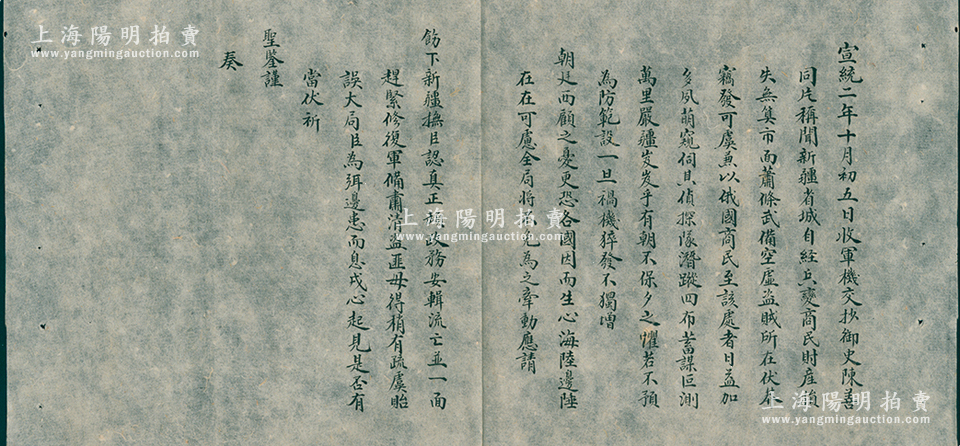 宣統二年十月初五日收軍機交抄御史陳善
同片稱聞新疆省城自經兵變商民財產損
失無算市面蕭條武備空虛盜賊所在伏莽
竊發可虞兼以俄國商民至該處者日益加
多夙萌窺伺其偵探隊潛蹤四布蓄謀叵測
萬里嚴疆岌岌乎有朝不保夕之懼若不預
為防範設一旦禍機猝發不獨增
朝廷西顧之憂更恐各國因而生心海陸邊陲
在在可慮全局將 為之牽動應請
飭下新疆撫臣認真正 務安輯流亡並一面
趕緊修復軍備肅清盜匪毋得稍有疏虞貽
誤大局臣為弭邊患而息戎心起見是否有
當伏祈
聖鑒謹
奏
上海陽明拍賣
www.yangmingauction.com
上海陽明拍賣
www.yangmingauction.com
上海陽明拍賣
www.yangmingauction.com